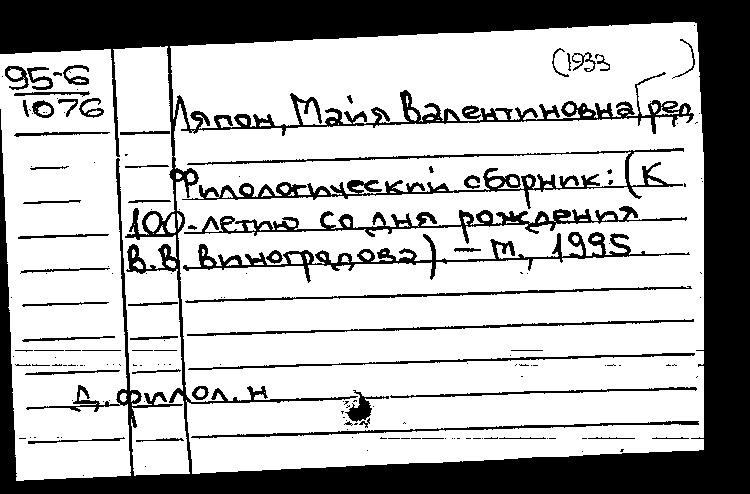 95-6
1076
(1933 )
Ляпон, Майя Валентиновна, ред
Филологический сборник: (К
100-летию со дня рождения
В.В. Виноградова). – М., 1995.
Д. филол. н